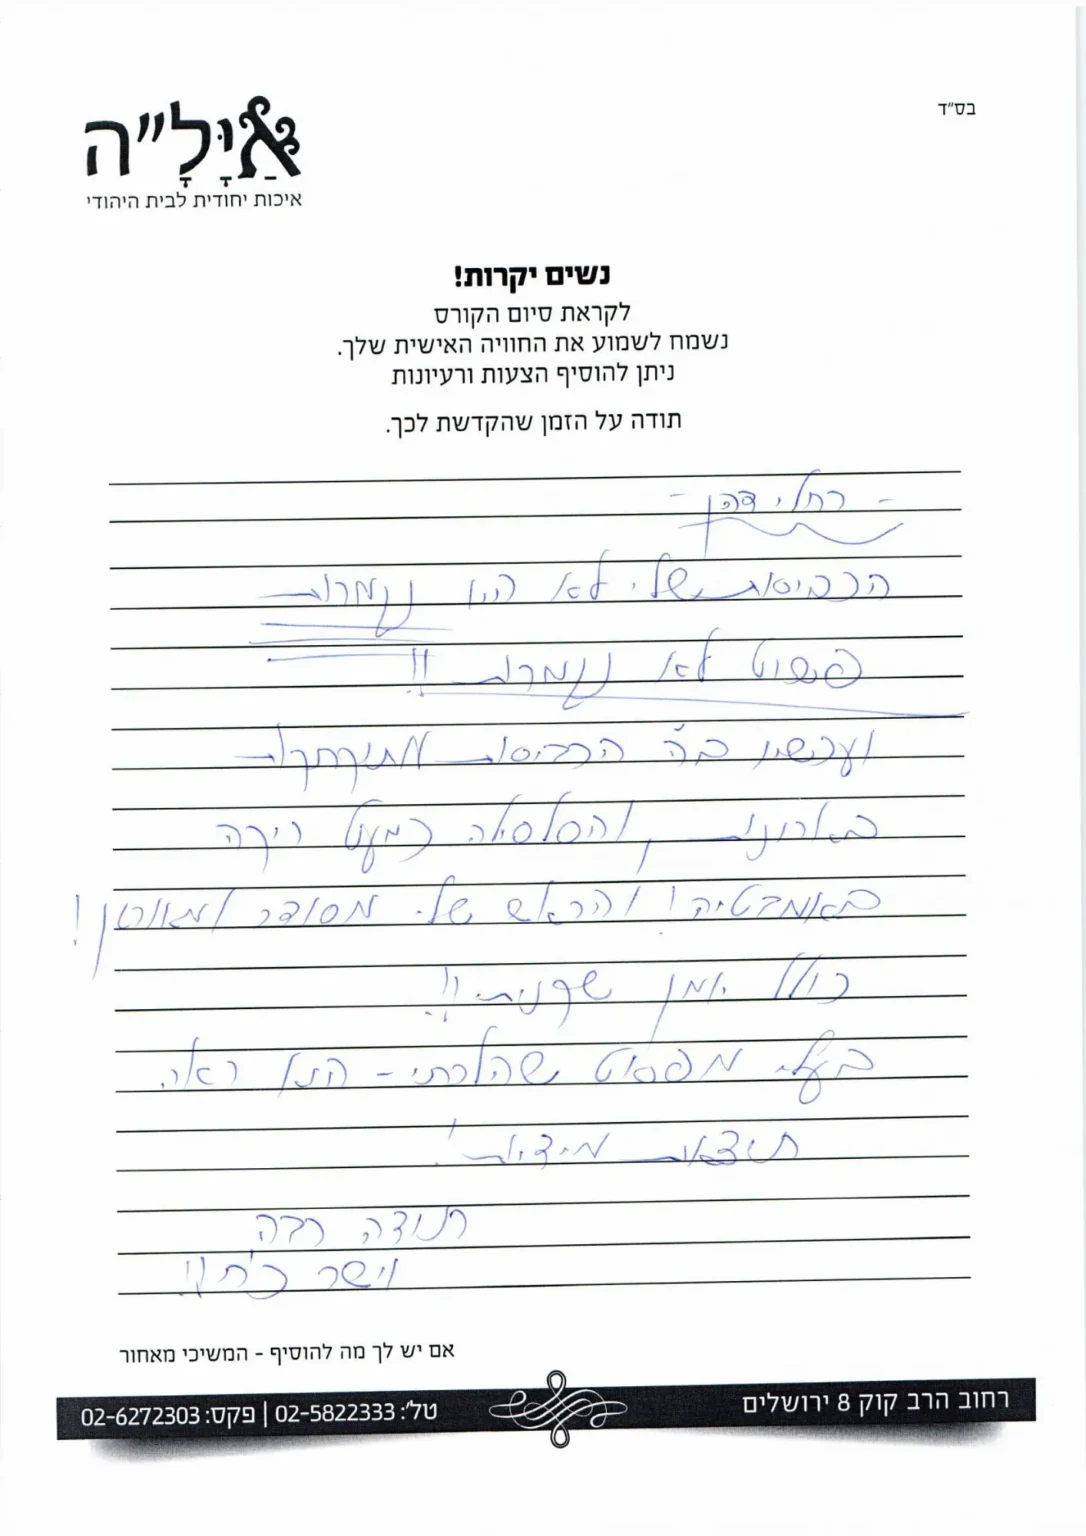 בס"ד
אַיָּלָ"ה
איכות יחודית לבית היהודי
נשים יקרות!
לקראת סיום הקורס
נשמח לשמוע את החוויה האישית שלך.
ניתן להוסיף הצעות ורעיונות
תודה על הזמן שהקדשת לכך.
- רחלי דהן -
הכביסות שלי לא היו נגמרות
פשוט לא נגמרות!!
ועכשיו ב"ה הכביסות מתוקתקות
בארונות, והסלסלה כמעט ריקה
באמבטיה! והראש שלי מסודר ומאורגן!
כולל יומן שבועית!!
בעלי מפסוט שהלכתי - הנה ראה
תוצאות מידיות!
תודה רבה
ויישר כ"ח!!
אם יש לך מה להוסיף - המשיכי מאחור
רחוב הרב קוק 8 ירושלים
טל': 02-5822333 | פקס: 02-6272303